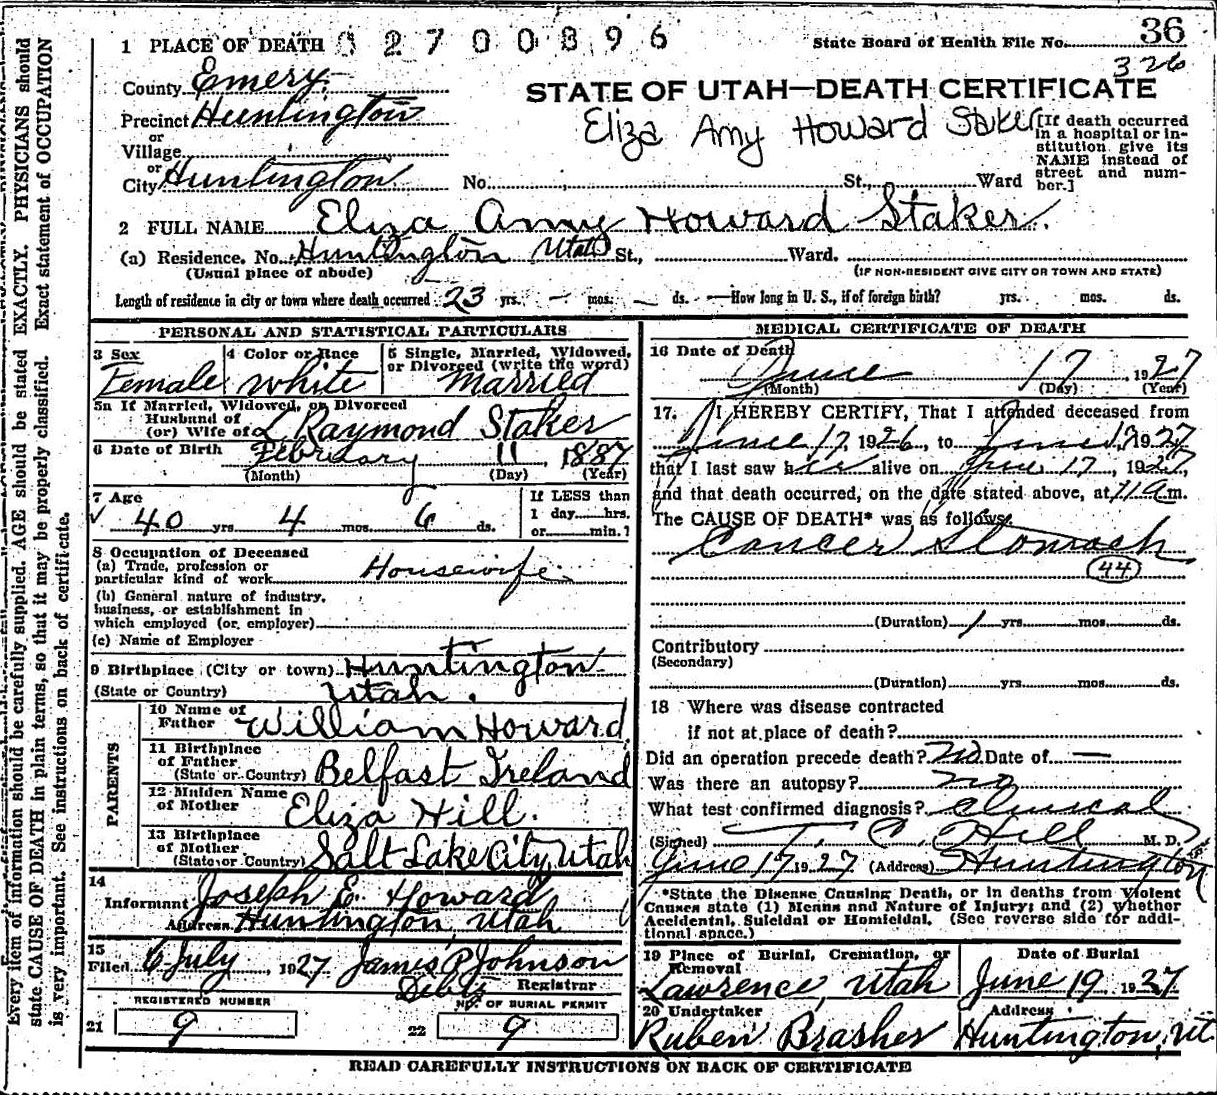 1 PLACE OF DEATH 0 2 7 0 0 8 9 6 State Board of Health File No. 36
326
County Emery
STATE OF UTAH—DEATH CERTIFICATE
Precinct Huntington
Eliza Amy Howard Staker
or
Village
or
City Huntington No. St., Ward
[If death occurred
in a hospital or in-
stitution give its
NAME instead of
street and num-
ber.]
2 FULL NAME Eliza Amy Howard Staker.
(a) Residence. No. Huntington Utah St., Ward.
(Usual place of abode) (IF NON-RESIDENT GIVE CITY OR TOWN AND STATE)
Length of residence in city or town where death occurred 23 yrs. — mos. — ds. —How long in U. S., if of foreign birth? yrs. mos. ds.
PERSONAL AND STATISTICAL PARTICULARS
3 Sex
Female
4 Color or Race
White
5 Single, Married, Widowed,
or Divorced (write the word)
Married
5a If Married, Widowed, or Divorced
Husband of
(or) Wife of L Raymond Staker
6 Date of Birth February 11, 1887
(Month) (Day) (Year)
7 Age
40 yrs 4 mos. 6 ds.
If LESS than
1 day hrs.
or min.?
8 Occupation of Deceased
(a) Trade, profession or
particular kind of work Housewife
(b) General nature of industry,
business, or establishment in
which employed (or employer)
(c) Name of Employer
9 Birthplace (City or town) Huntington
(State or Country) Utah.
PARENTS
10 Name of
Father William Howard
11 Birthplace
of Father
(State or Country) Belfast Ireland
12 Maiden Name
of Mother Eliza Hill.
13 Birthplace
of Mother
(State or Country) Salt Lake City, Utah
14
Informant Joseph E. Howard
Address Huntington, Utah
15
Filed 6 July, 1927 James P Johnson
Registrar
REGISTERED NUMBER
21 9
NO. OF BURIAL PERMIT
22 9
MEDICAL CERTIFICATE OF DEATH
16 Date of Death
June 17, 1927
(Month) (Day) (Year)
17. I HEREBY CERTIFY, That I attended deceased from
June 17, 1926, to June 17 1927
that I last saw her alive on June 17, 1927,
and that death occurred, on the date stated above, at 11 a m.
The CAUSE OF DEATH* was as follows:
Cancer Stomach
44
(Duration) 1 yrs. mos. ds.
Contributory
(Secondary)
(Duration) yrs. mos. ds.
18 Where was disease contracted
if not at place of death?
Did an operation precede death? No Date of —
Was there an autopsy? no
What test confirmed diagnosis? Clinical
(Signed) T. C. Hill M. D.
June 17 1927 (Address) Huntington
*State the Disease Causing Death, or in deaths from Violent
Causes state (1) Means and Nature of Injury; and (2) whether
Accidental, Suicidal or Homicidal. (See reverse side for addi-
tional space.)
19 Place of Burial, Cremation, or
Removal
Lawrence, Utah
Date of Burial
June 19 1927
20 Undertaker
Ruben Brasher
Address
Huntington, Ut
READ CAREFULLY INSTRUCTIONS ON BACK OF CERTIFICATE
Every item of information should be carefully supplied. AGE should be stated EXACTLY. PHYSICIANS should
state CAUSE OF DEATH in plain terms, so that it may be properly classified. Exact statement of OCCUPATION
is very important. See instructions on back of certificate.